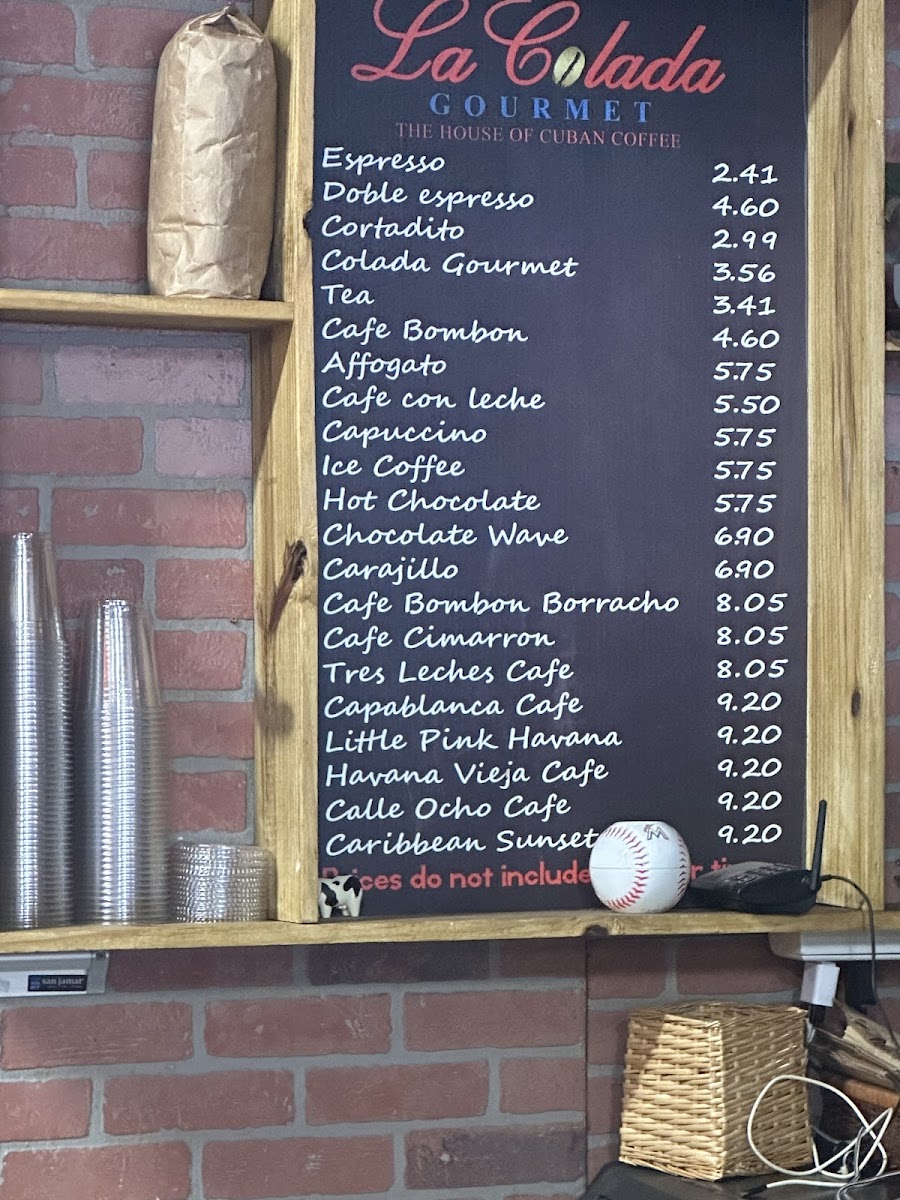 La Colada
GOURMET
THE HOUSE OF CUBAN COFFEE
Espresso 2.41
Doble espresso 4.60
Cortadito 2.99
Colada Gourmet 3.56
Tea 3.41
Cafe Bombon 4.60
Affogato 5.75
Cafe con leche 5.50
Capuccino 5.75
Ice Coffee 5.75
Hot Chocolate 5.75
Chocolate Wave 6.90
Carajillo 6.90
Cafe Bombon Borracho 8.05
Cafe Cimarron 8.05
Tres Leches Cafe 8.05
Capablanca Cafe 9.20
Little Pink Havana 9.20
Havana Vieja Cafe 9.20
Calle Ocho Cafe 9.20
Caribbean Sunset 9.20
Prices do not include
M
san jamar